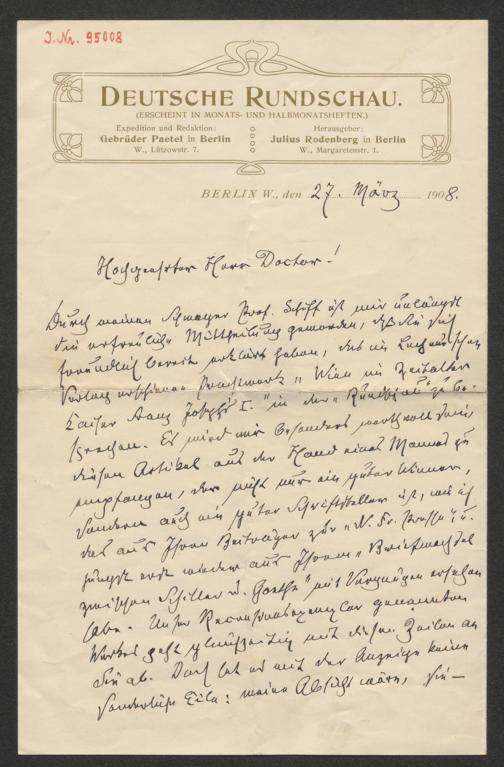 J. Nr. 95008
DEUTSCHE RUNDSCHAU.
(ERSCHEINT IN MONATS- UND HALBMONATSHEFTEN.)
Expedition und Redaktion:
Gebrüder Paetel in Berlin
W., Lützowstr. 7.
Herausgeber:
Julius Rodenberg in Berlin
W., Margaretenstr. 1.
BERLIN W., den 27. März 1908.
Hochgeehrter Herr Doctor!
Durch meinen Schwager Prof. Schiff ist mir unlängst
die erfreuliche Mittheilung geworden, daß Sie sich
freundlich bereit erklärt haben, das im
Verlag erschienene Prachtwerk „Wien im Zeitalter
Kaiser Franz Josephs I." in der „Rundschau" zu be-
sprechen. Es wird mir besonders werthvoll sein
diesen Artikel aus der Hand eines Mannes zu
empfangen, der nicht nur ein guter Wiener,
sondern auch ein guter Schriftsteller ist, wie ich
das aus Ihren Beiträgen zur „N. Fr. Presse", u.
jüngst erst wieder aus Ihrem „Briefwechsel
zwischen Schiller u. Goethe" mit Vergnügen ersehen
habe. Unser Recensionsexemplar genannten
Werkes geht gleichzeitig mit diesen Zeilen an
Sie ab. Doch hat es mit der Anzeige keine
sonderliche Eile: meine Absicht wäre, Sie –